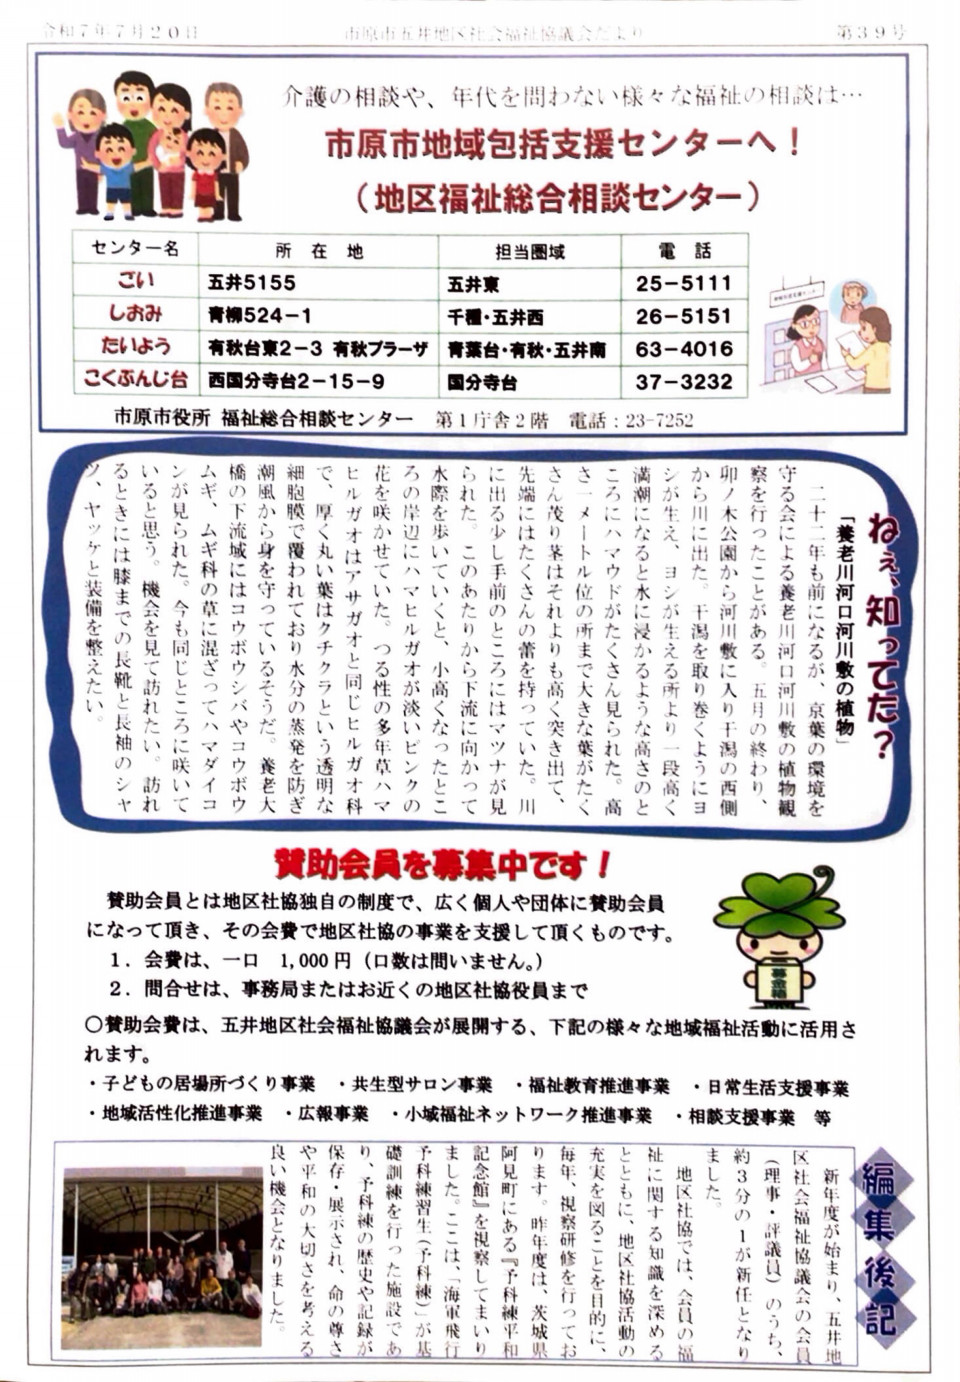 令和7年7月20日　市原市五井地区社会福祉協議会だより　第39号
介護の相談や、年代を問わない様々な福祉の相談は…
市原市地域包括支援センターへ！
（地区福祉総合相談センター）
センター名　所　在　地　担当圏域　電　話
ごい　五井5155　五井東　25－5111
しおみ　青柳524－1　千種・五井西　26－5151
たいよう　有秋台東2－3 有秋プラーザ　青葉台・有秋・五井南　63－4016
こくぶんじ台　西国分寺台2－15－9　国分寺台　37－3232
市原市役所 福祉総合相談センター　第1庁舎2階　電話：23-7252
ねぇ、知ってた？
「養老川河口河川敷の植物」
二十二年も前になるが、京葉の環境を
守る会による養老川河口河川敷の植物観
察を行ったことがある。五月の終わり、
卯ノ木公園から河川敷に入り干潟の西側
から川に出た。干潟を取り巻くようにヨ
シが生え、ヨシが生える所より一段高く
満潮になると水に浸かるような高さのと
ころにハマウドがたくさん見られた。高
さ一メートル位の所まで大きな葉がたく
さん茂り茎はそれよりも高く突き出て、
先端にはたくさんの蕾を持っていた。川
に出る少し手前のところにはマツナが見
られた。このあたりから下流に向かって
水際を歩いていくと、小高くなったとこ
ろの岸辺にハマヒルガオが淡いピンクの
花を咲かせていた。つる性の多年草ハマ
ヒルガオはアサガオと同じヒルガオ科
で、厚く丸い葉はクチクラという透明な
細胞膜で覆われており水分の蒸発を防ぎ
潮風から身を守っているそうだ。養老大
橋の下流域にはコウボウシバやコウボウ
ムギ、ムギ科の草に混ざってハマダイコ
ンが見られた。今も同じところに咲いて
いると思う。機会を見て訪れたい。訪れ
るときには膝までの長靴と長袖のシャ
ツ、ヤッケと装備を整えたい。
賛助会員を募集中です！
賛助会員とは地区社協独自の制度で、広く個人や団体に賛助会員
になって頂き、その会費で地区社協の事業を支援して頂くものです。
1．会費は、一口　1,000円（口数は問いません。）
2．問合せは、事務局またはお近くの地区社協役員まで
募金箱
○賛助会費は、五井地区社会福祉協議会が展開する、下記の様々な地域福祉活動に活用さ
れます。
・子どもの居場所づくり事業　・共生型サロン事業　・福祉教育推進事業　・日常生活支援事業
・地域活性化推進事業　・広報事業　・小域福祉ネットワーク推進事業　・相談支援事業　等
編集後記
新年度が始まり、五井地
区社会福祉協議会の会員
（理事・評議員）のうち、
約3分の1が新任となり
ました。
地区社協では、会員の福
祉に関する知識を深める
とともに、地区社協活動の
充実を図ることを目的に、
毎年、視察研修を行ってお
ります。昨年度は、茨城県
阿見町にある『予科練平和
記念館』を視察してまいり
ました。ここは、「海軍飛行
予科練習生（予科練）」が基
礎訓練を行った施設であ
り、予科練の歴史や記録が
保存・展示され、命の尊さ
や平和の大切さを考える
良い機会となりました。